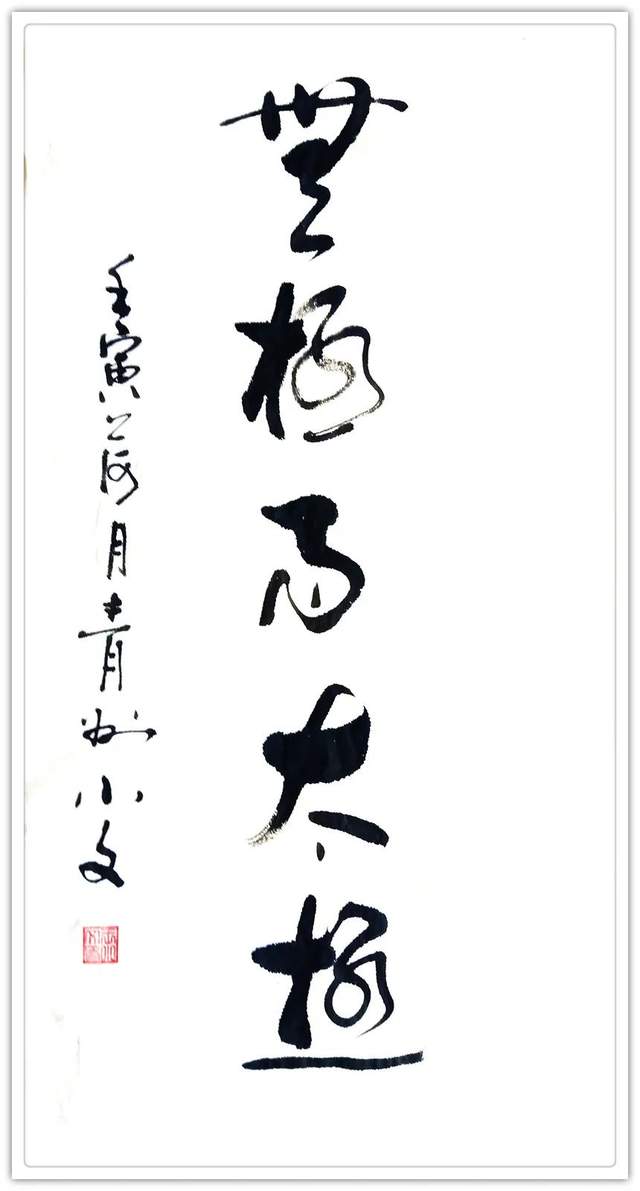 無極而太極
壬寅荷月青州小文